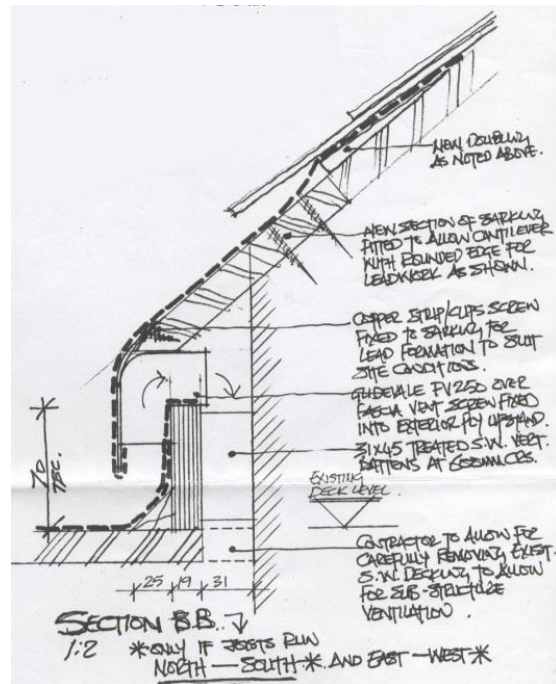 NEW DOUBLING
AS NOTED ABOVE.
NEW SECTION OF SARKING
FITTED TO ALLOW CANTILEVER
WITH ROUNDED EDGE FOR
LEADWORK AS SHOWN.
COPPER STRIP/CLIPS SCREW
FIXED TO SARKING FOR
LEAD FORMATION TO SUIT
SITE CONDITIONS.
GLIDEVALE FV250 OVER
FASCIA VENT SCREW FIXED
INTO EXTERIOR PLY UPSTAND.
31x45 TREATED S.W. VERT.
BATTENS AT 600MM CRS.
EXISTING
DECK LEVEL.
CONTRACTOR TO ALLOW FOR
CAREFULLY REMOVING EXIST.
S.W. DECKING TO ALLOW
FOR SUB-STRUCTURE
VENTILATION.
70
25 19 31
SECTION B.B.
1:2 *ONLY IF JOISTS RUN
NORTH — SOUTH * AND EAST — WEST *